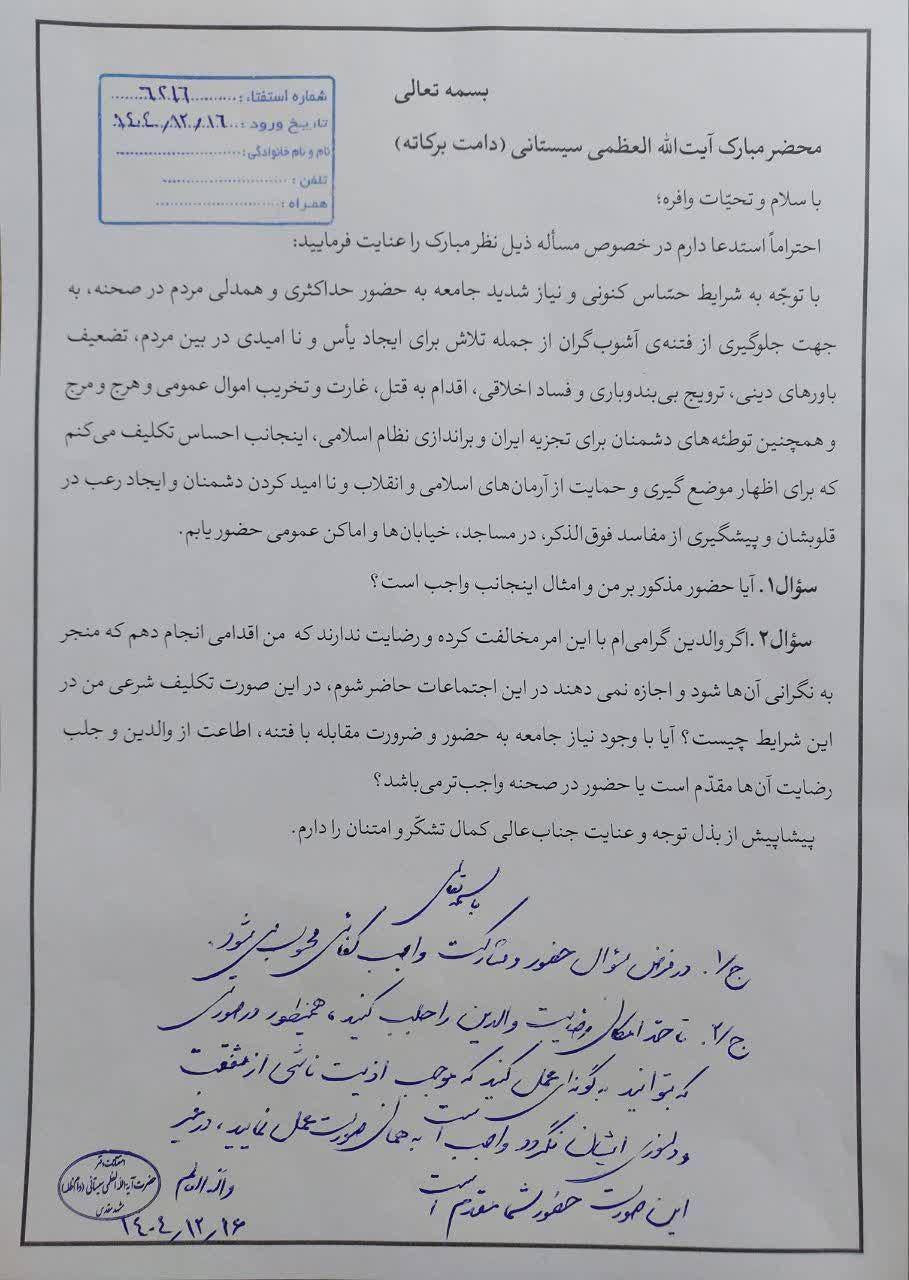 بسمه تعالی
شماره استفتاء: ..........۶۲۱۶......
تاریخ ورود: ..۱۴۰۴/۱۲/۱۶
نام و نام خانوادگی: ........................
تلفن: ........................
همراه: ........................
محضر مبارک آیت‌الله العظمی سیستانی (دامت برکاته)
با سلام و تحیّات وافره؛
احتراماً استدعا دارم در خصوص مسأله ذیل نظر مبارک را عنایت فرمایید:
با توجّه به شرایط حسّاس کنونی و نیاز شدید جامعه به حضور حداکثری و همدلی مردم در صحنه، به
جهت جلوگیری از فتنه‌ی آشوب‌گران از جمله تلاش برای ایجاد یأس و نا امیدی در بین مردم، تضعیف
باورهای دینی، ترویج بی‌بندوباری و فساد اخلاقی، اقدام به قتل، غارت و تخریب اموال عمومی و هرج و مرج
و همچنین توطئه‌های دشمنان برای تجزیه ایران و براندازی نظام اسلامی، اینجانب احساس تکلیف می‌کنم
که برای اظهار موضع گیری و حمایت از آرمان‌های اسلامی و انقلاب و نا امید کردن دشمنان و ایجاد رعب در
قلوبشان و پیشگیری از مفاسد فوق‌الذکر، در مساجد، خیابان‌ها و اماکن عمومی حضور یابم.
سؤال۱. آیا حضور مذکور بر من و امثال اینجانب واجب است؟
سؤال۲. اگر والدین گرامی‌ام با این امر مخالفت کرده و رضایت ندارند که من اقدامی انجام دهم که منجر
به نگرانی آن‌ها شود و اجازه نمی دهند در این اجتماعات حاضر شوم، در این صورت تکلیف شرعی من در
این شرایط چیست؟ آیا با وجود نیاز جامعه به حضور و ضرورت مقابله با فتنه، اطاعت از والدین و جلب
رضایت آن‌ها مقدّم است یا حضور در صحنه واجب‌تر می‌باشد؟
پیشاپیش از بذل توجه و عنایت جناب‌عالی کمال تشکّر و امتنان را دارم.
باسمه تعالی
ج/۱. در فرض سؤال حضور و مشارکت واجب کفائی محسوب می شود.
ج/۲. تا حدّ امکان رضایت والدین را جلب کنید، همینطور در صورتی
که بتوانید به گونه‌ای عمل کنید که موجب اذیت ناشی از شفقت
و دلسوزی ایشان نگردد واجب است به همان صورت عمل نمایید، در غیر
این صورت حضور شما مقدم است
والله العالم
استفتائات دفتر
حضرت آیة الله العظمی سیستانی (دام ظله)
مشهد مقدس
۱۴۰۴/۱۲/۱۶